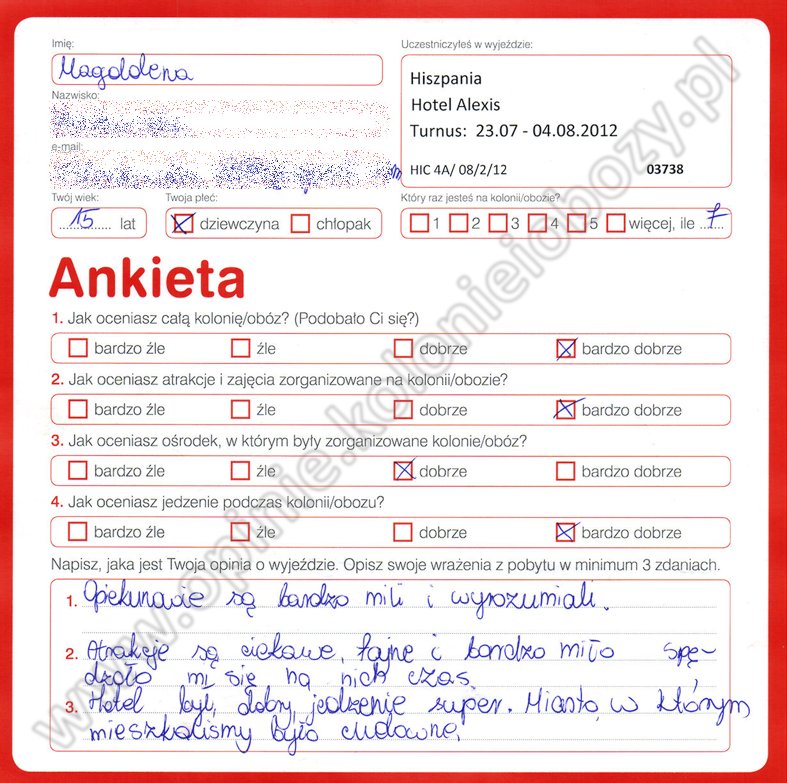 Imię:
Magdalena
Uczestniczyłeś w wyjeździe:
Hiszpania
Hotel Alexis
Turnus: 23.07 - 04.08.2012
HIC 4A/ 08/2/12 03738
Nazwisko:
e-mail:
Twój wiek:
15 lat
Twoja płeć:
dziewczyna chłopak
Który raz jesteś na kolonii/obozie?
1 2 3 4 5 więcej, ile 7
Ankieta
1. Jak oceniasz całą kolonię/obóz? (Podobało Ci się?)
bardzo źle źle dobrze bardzo dobrze
2. Jak oceniasz atrakcje i zajęcia zorganizowane na kolonii/obozie?
bardzo źle źle dobrze bardzo dobrze
3. Jak oceniasz ośrodek, w którym były zorganizowane kolonie/obóz?
bardzo źle źle dobrze bardzo dobrze
4. Jak oceniasz jedzenie podczas kolonii/obozu?
bardzo źle źle dobrze bardzo dobrze
Napisz, jaka jest Twoja opinia o wyjeździe. Opisz swoje wrażenia z pobytu w minimum 3 zdaniach.
1. Opiekunowie są bardzo mili i wyrozumiali.
2. Atrakcje są ciekawe, fajne i bardzo miło spę-
dzało mi się na nich czas
3. Hotel był dobry, jedzenie super. Miasto, w którym
mieszkaliśmy było cudowne.
www.opinie.kolonieiobozy.pl